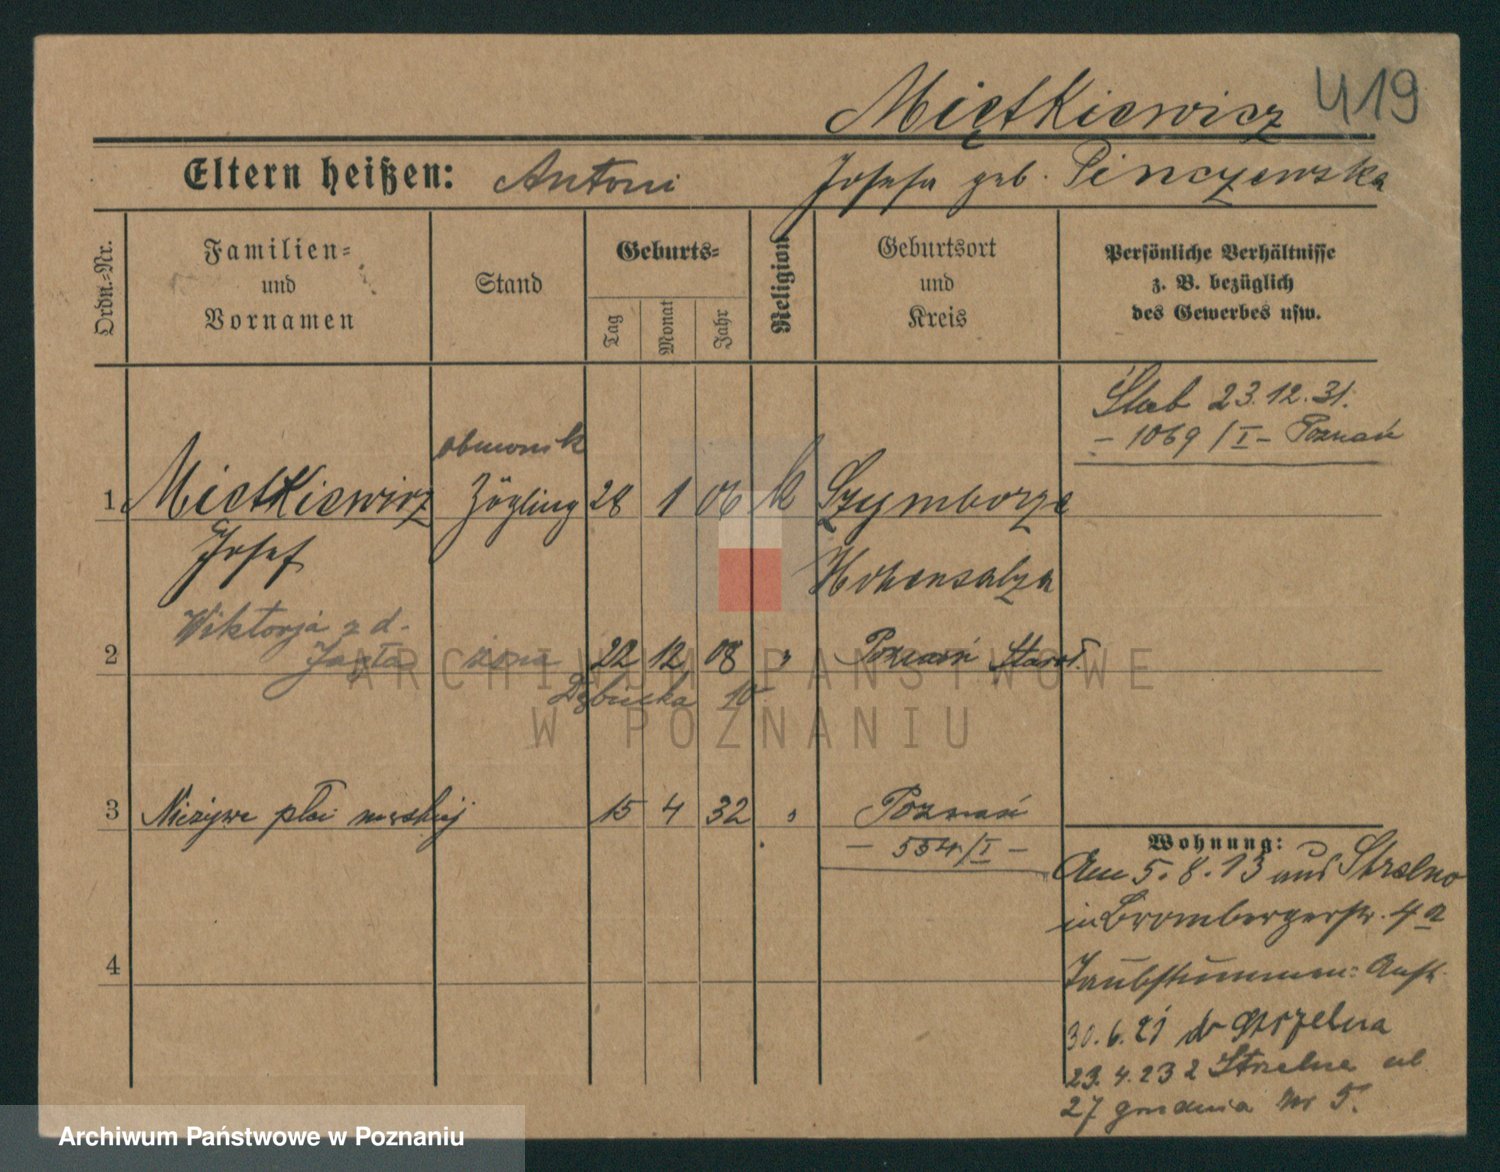 Miętkiewicz 419
Eltern heißen: Antoni Josefa geb. Pinczewska
Ordn.-Nr.
Familien-
und
Vornamen
Stand
Geburts-
Tag
Monat
Jahr
Religion
Geburtsort
und
Kreis
Persönliche Verhältnisse
z. B. bezüglich
des Gewerbes usw.
Ślub 23.12.31.
- 1069/I - Poznań
obuwnik
1 Mietkiewicz Zögling 28 1 06 k Szymborze
Josef Hohensalza
Wiktorja z d.
2 żona 22 12 08 " Poznań Staroł.
Dębiecka 10
3 Nieżywe płci męskiej 15 4 32 " Poznań
- 554/I -
4
Wohnung:
Am 5.8.13 aus Strelno
in Brombergerstr. 4a
Taubstummen: Anst.
30.6.21 do Strzelna
23.4.23 z Strzelna ul.
27 grudnia Nr 5.
ARCHIWUM PAŃSTWOWE
W POZNANIU
Archiwum Państwowe w Poznaniu